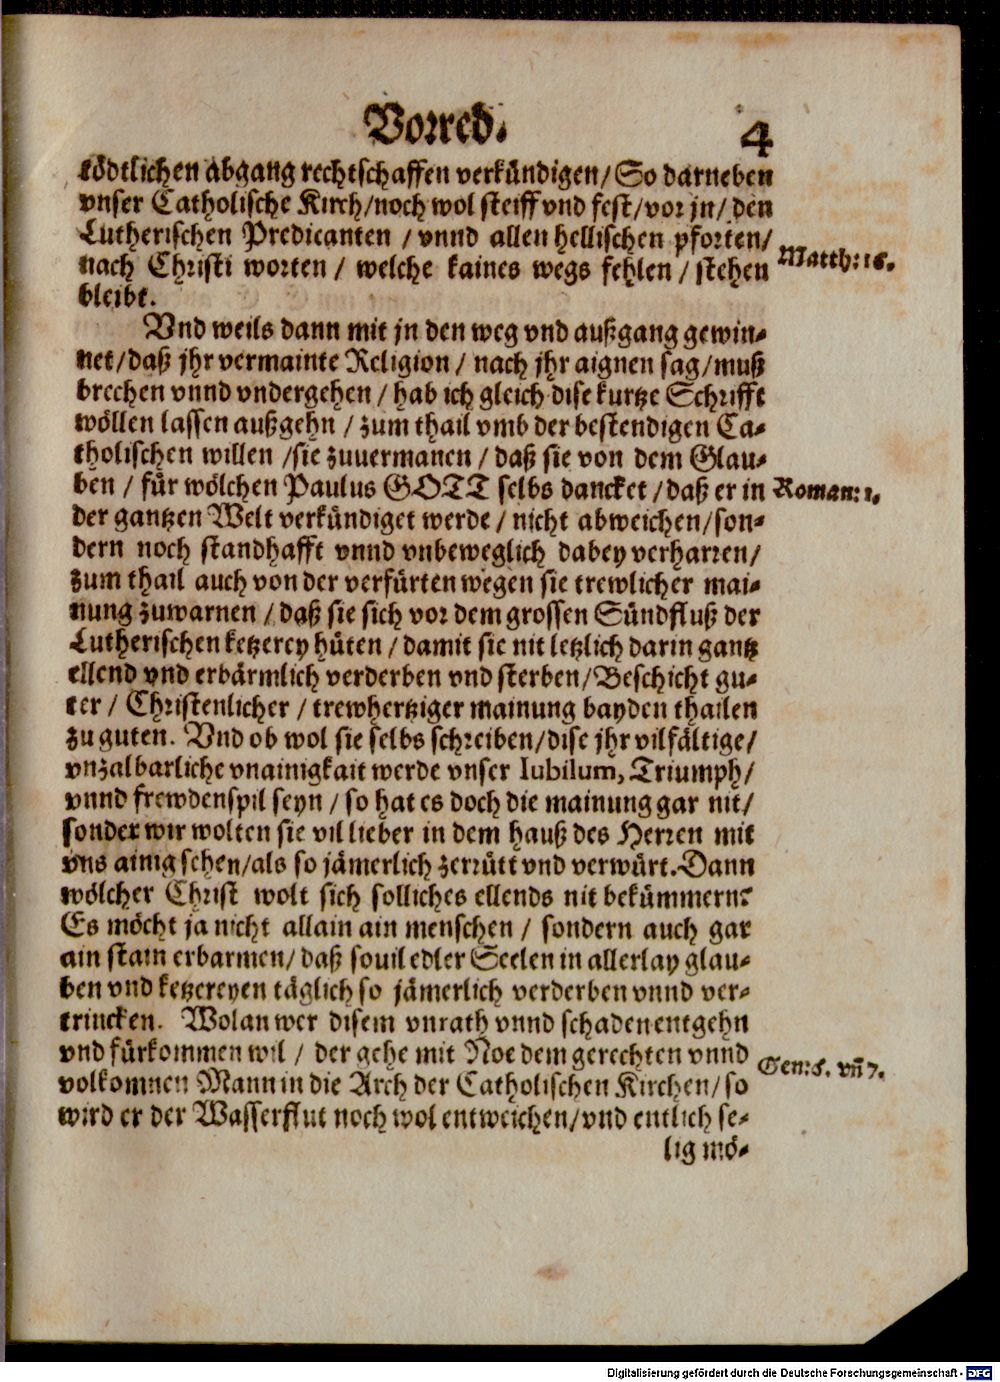 Vorred. 4
tödtlichen abgang rechtschaffen verkündigen/ So darneben
vnser Catholische Kirch/noch wol steiff vnd fest/vor jn/ den
Lutherischen Predicanten / vnnd allen hellischen pforten/
nach Christi worten / welche kaines wegs fehlen / stehen
Matth: 16.
bleibt.
Vnd weils dann mit jn den weg vnd außgang gewin-
net/daß jhr vermainte Religion / nach jhr aignen sag/muß
brechen vnnd vndergehen / hab ich gleich dise kurtze Schrifft
wöllen lassen außgehn / zum thail vmb der bestendigen Ca-
tholischen willen /sie zuuermanen / daß sie von dem Glau-
ben / für wölchen Paulus GOTT selbs dancket /daß er in
Roman: 1.
der gantzen Welt verkündiget werde / nicht abweichen/son-
dern noch standhafft vnnd vnbeweglich dabey verharren/
zum thail auch von der verfürten wegen sie trewlicher mai-
nung zuwarnen / daß sie sich vor dem grossen Sündfluß der
Lutherischen ketzerey hüten / damit sie nit letzlich darin gantz
ellend vnd erbärmlich verderben vnd sterben/Beschicht gu-
ter / Christenlicher / trewhertziger mainung bayden thailen
zu guten. Vnd ob wol sie selbs schreiben/dise jhr vilfältige/
vnzalbarliche vnainigkait werde vnser Iubilum, Triumph/
vnnd frewdenspil seyn / so hat es doch die mainung gar nit/
sonder wir wolten sie vil lieber in dem hauß des Herren mit
vns ainig sehen/als so jämerlich zerrütt vnd verwürt. Dann
wölcher Christ wolt sich solliches ellends nit bekümmern?
Es möcht ja nicht allain ain menschen / sondern auch gar
ain stain erbarmen/ daß souil edler Seelen in allerlay glau-
ben vnd ketzereyen täglich so jämerlich verderben vnnd ver-
trincken. Wolan wer disem vnrath vnnd schaden entgehn
vnd fürkommen wil / der gehe mit Noe dem gerechten vnnd
Gen: 6. vñ 7.
volkommen Mann in die Arch der Catholischen Kirchen/ so
wird er der Wasserflut noch wol entweichen/vnd entlich se-
lig mö-
Digitalisierung gefördert durch die Deutsche Forschungsgemeinschaft - DFG